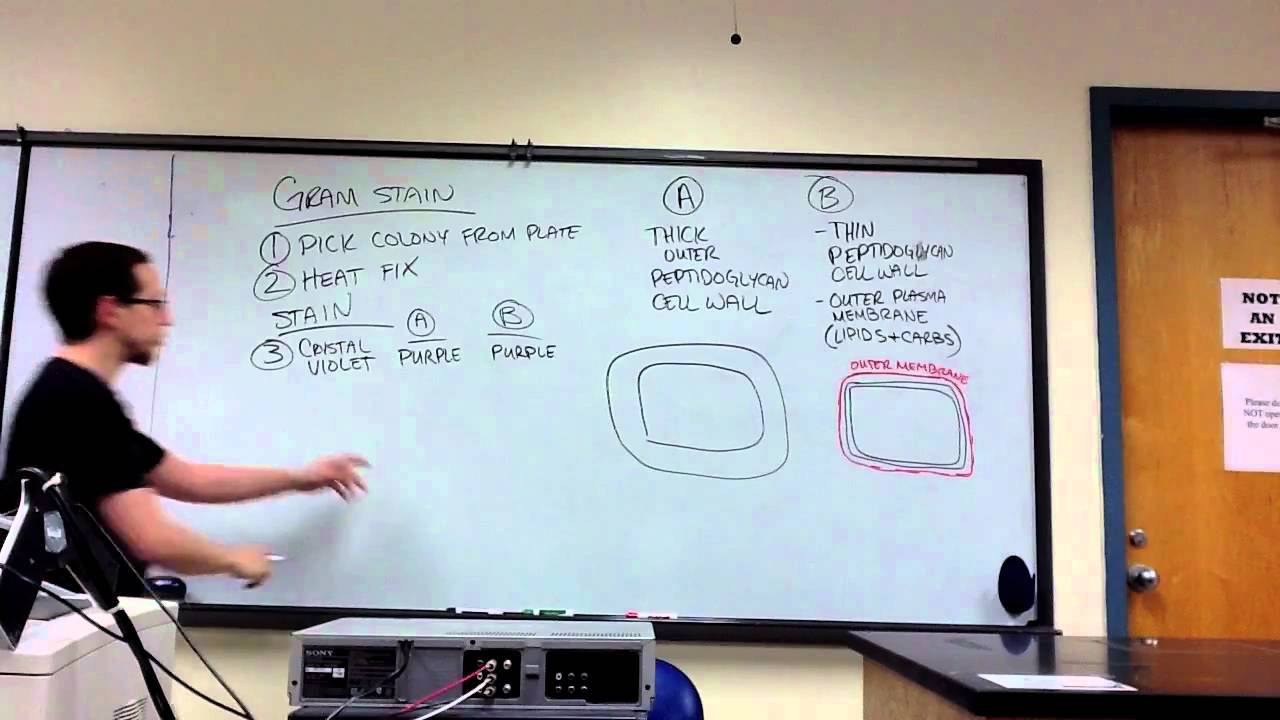 GRAM STAIN
① PICK COLONY FROM PLATE
② HEAT FIX
STAIN Ⓐ Ⓑ
③ CRYSTAL VIOLET PURPLE PURPLE
Ⓐ
THICK
OUTER
PEPTIDOGLYCAN
CELL WALL
Ⓑ
- THIN
PEPTIDOGLYCAN
CELL WALL
- OUTER PLASMA
MEMBRANE
(LIPIDS + CARBS)
OUTER MEMBRANE
NOT
AN
EXIT
Please do
NOT open
the door
SONY